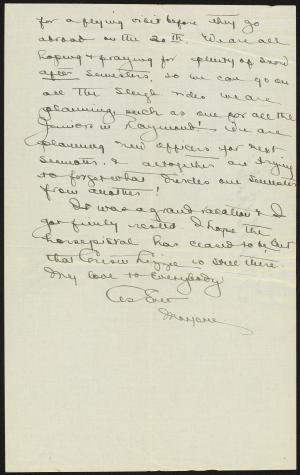 for a flying visit before they go
abroad on the 20th. We are all
hoping & praying for plenty of snow
after semesters, so we can go on
all the sleigh rides we are
planning, such as one for all the
Juniors in Raymond! We are
planning new officers for next
semester & altogether are trying
to forget what divides one semester
from another!
It was a grand vacation & I
got finely rested. I hope the
has ceased to be but
that Cousin Lizzie is still there.
My love to everybody
As Ever
Marjorie